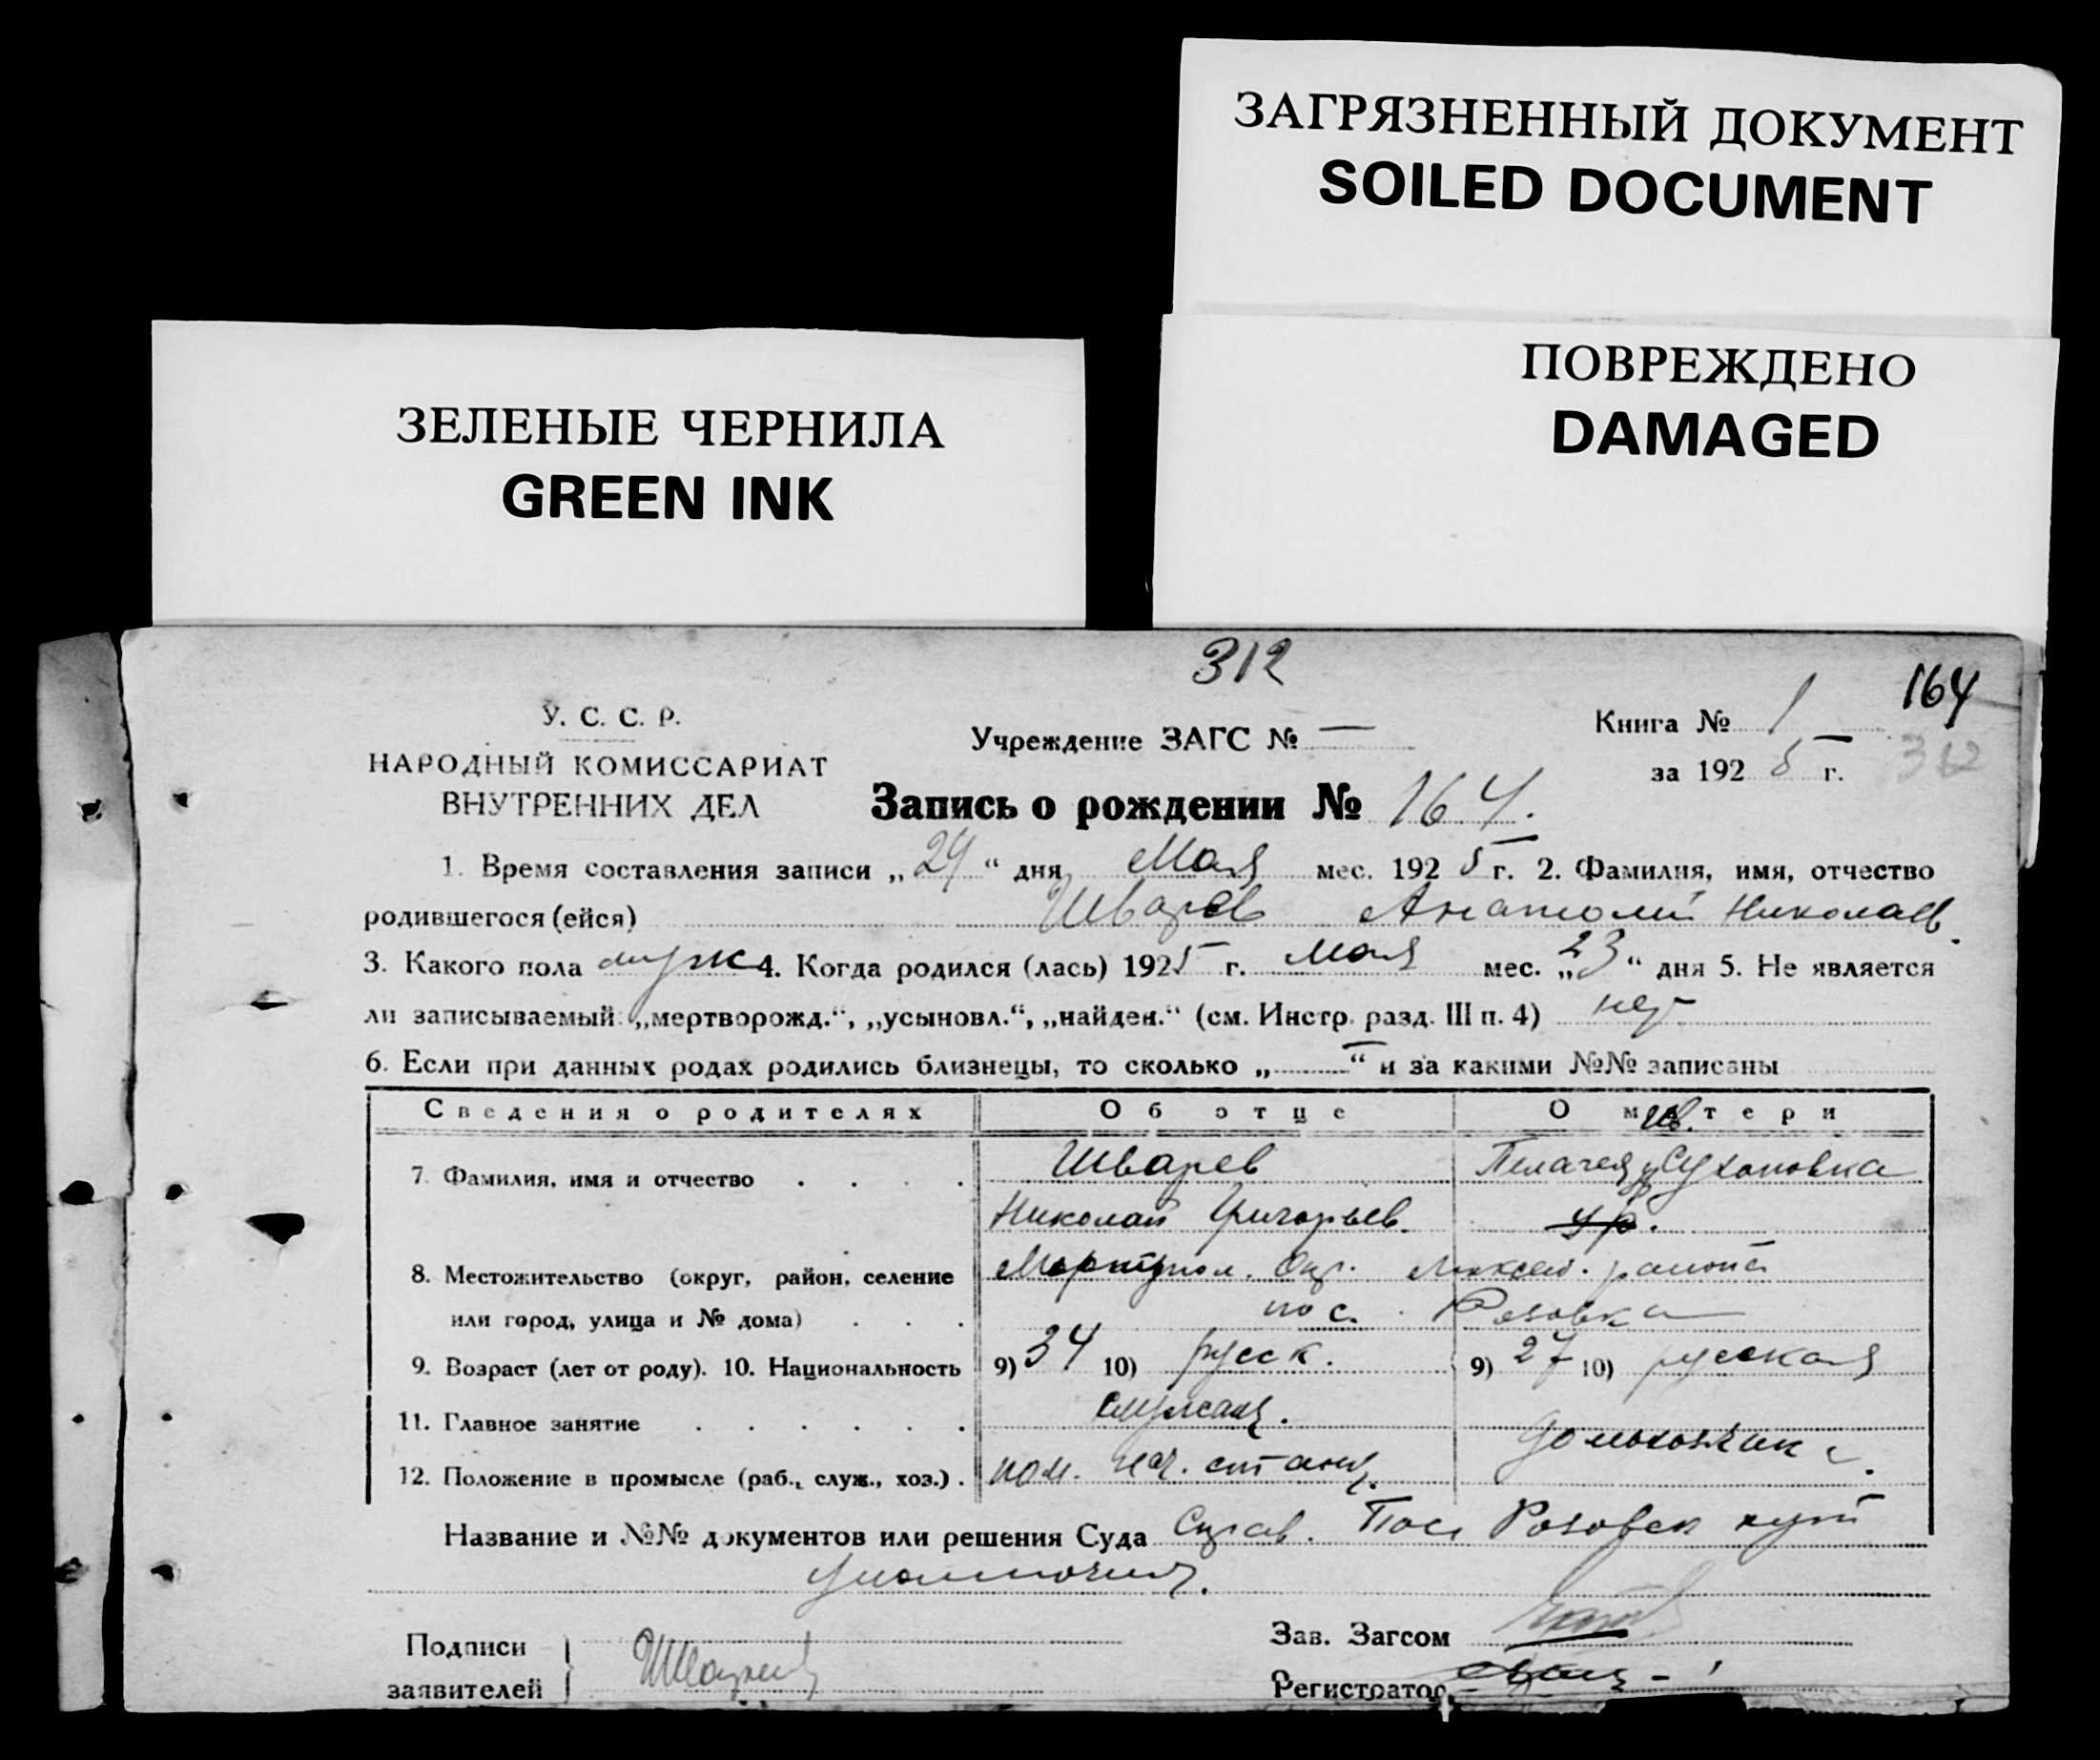 ЗАГРЯЗНЕННЫЙ ДОКУМЕНТ
SOILED DOCUMENT
ПОВРЕЖДЕНО
DAMAGED
ЗЕЛЕНЫЕ ЧЕРНИЛА
GREEN INK
312
164
312
У. С. С. Р.
НАРОДНЫЙ КОМИССАРИАТ
ВНУТРЕННИХ ДЕЛ
Учреждение ЗАГС № —
Книга № 1
за 1925 г.
Запись о рождении № 164.
1. Время составления записи „24“ дня Мая мес. 1925 г. 2. Фамилия, имя, отчество
родившегося (ейся) Шварев Анатолий Николаев.
3. Какого пола мужс 4. Когда родился (лась) 1925 г. Мая мес. „23“ дня 5. Не является
ли записываемый „мертворожд.“, „усыновл.“, „найден.“ (см. Инстр. разд. III п. 4) нет
6. Если при данных родах родились близнецы, то сколько „—“ и за какими №№ записаны
Сведения о родителях Об отце О матери
7. Фамилия, имя и отчество Шварев Пелагея Ив. Сухоновка
Николай Григорьев. ур.
8. Местожительство (округ, район, селение Мариупол. Окр. Люксем. района
или город, улица и № дома) пос. Розовка
9. Возраст (лет от роду). 10. Национальность 9) 34 10) русск. 9) 27 10) русская
11. Главное занятие служащ.
12. Положение в промысле (раб., служ., хоз.) пом. нач. станц. домохозяйка.
Название и №№ документов или решения Суда Справ. Пос. Розовск
Подписи
заявителей Шварев
Зав. Загсом
Регистратор